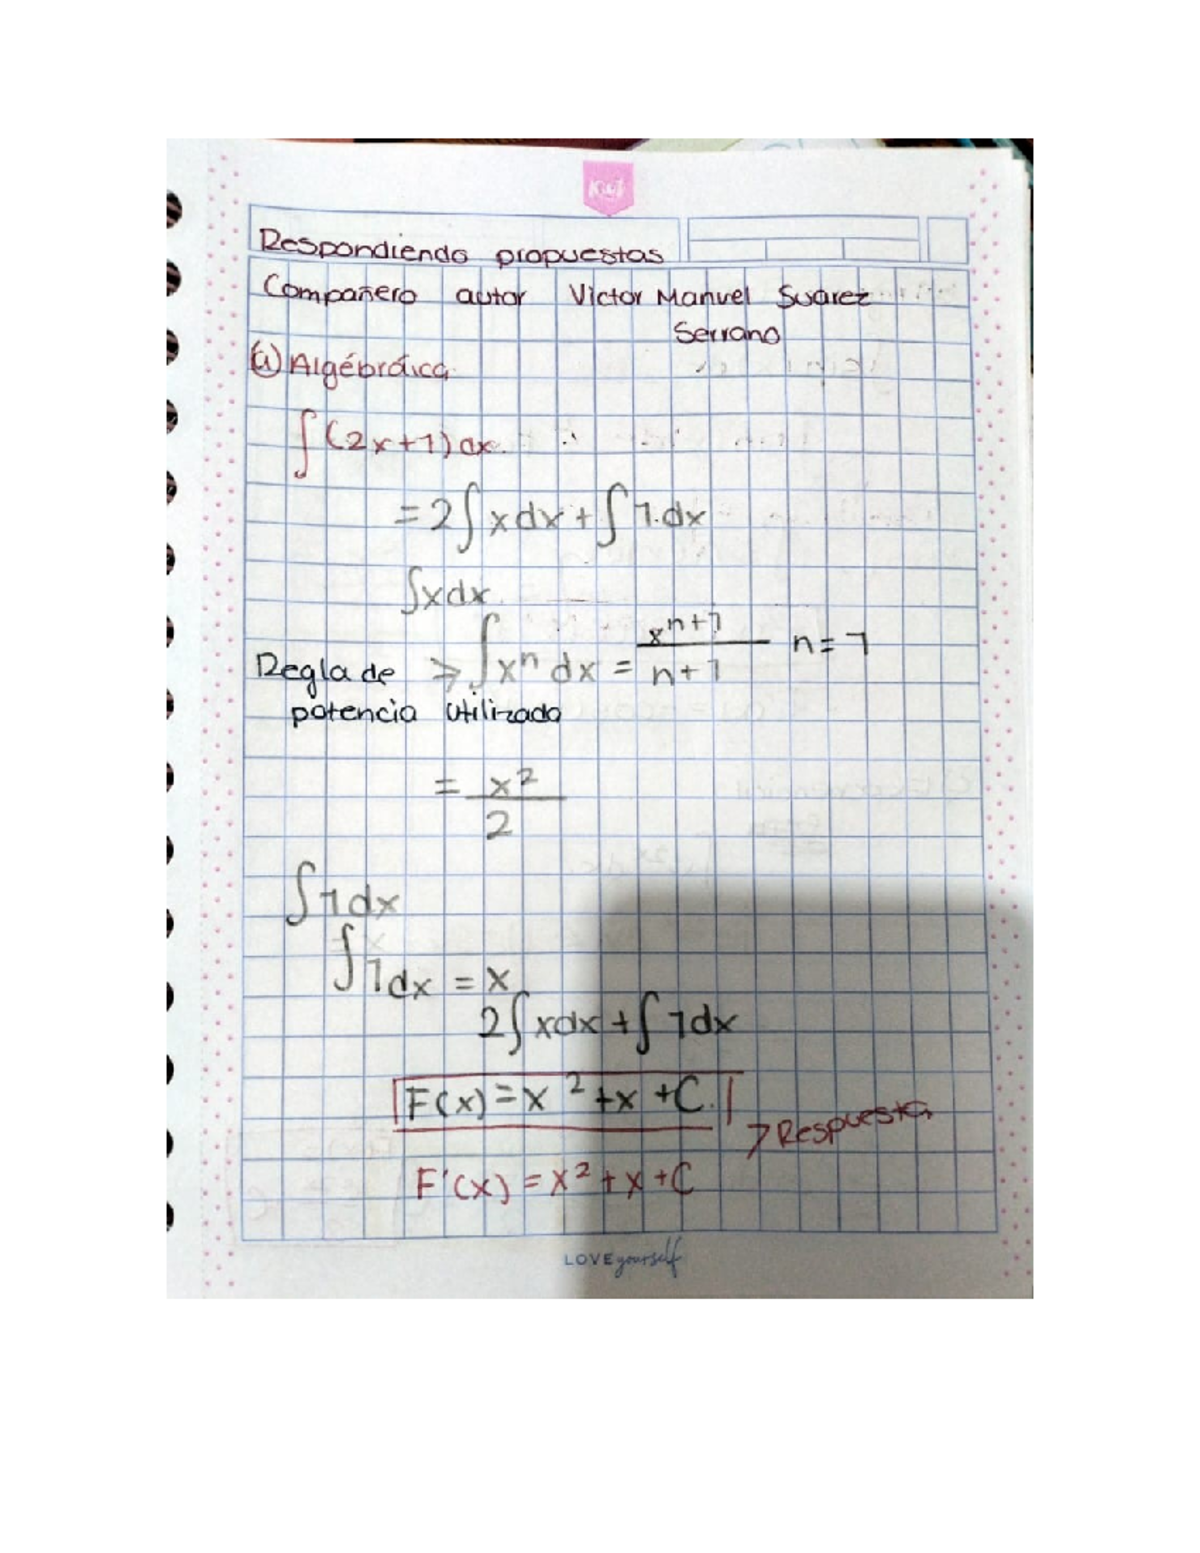 Kiut
Respondiendo propuestas
Compañero autor Victor Manuel Suarez
Serrano
a) Algébráica
∫(2x+1)dx
= 2∫xdx + ∫1.dx
∫xdx
Regla de → ∫xⁿ dx = xⁿ⁺¹ / n+1 n=1
potencia utilizada
= x² / 2
∫1dx
∫1dx = x
2∫xdx + ∫1dx
F(x) = x² + x + C.
→ Respuesta
F'(x) = x² + x + C
LOVE yourself